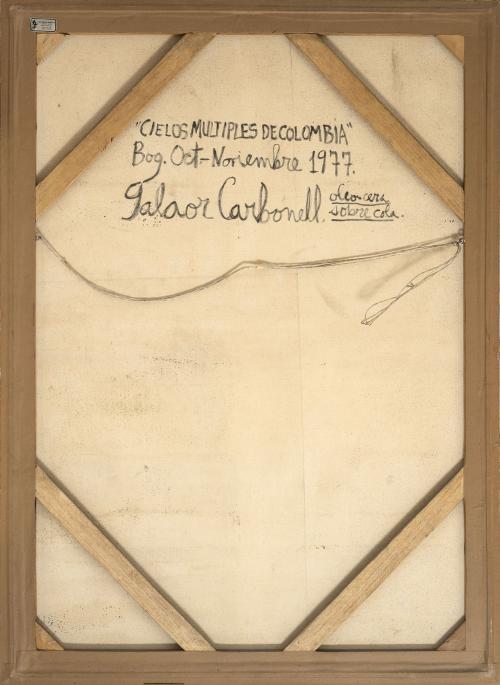 "CIELOS MULTIPLES DE COLOMBIA"
Bog. Oct-Noviembre 1977.
Galaor Carbonell. oleo-cera
sobre cola.